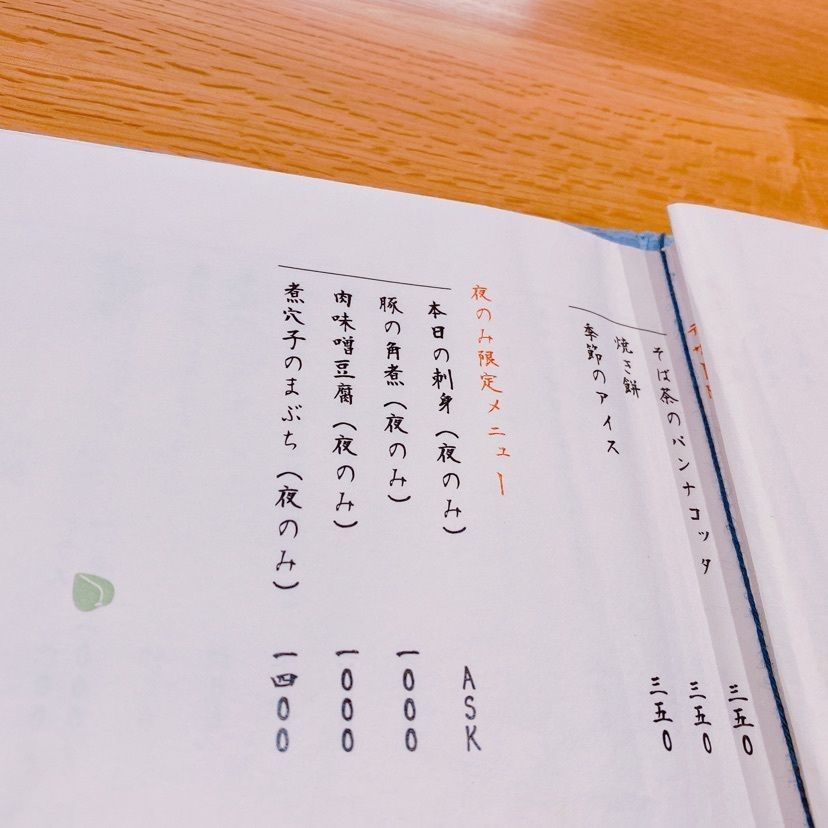 デザート
そば茶のパンナコッタ 三五0
焼き餅 三五0
季節のアイス 三五0
夜のみ限定メニュー
本日の刺身（夜のみ） ASK
豚の角煮（夜のみ） 一000
肉味噌豆腐（夜のみ） 一000
煮穴子のまぶち（夜のみ） 一四00